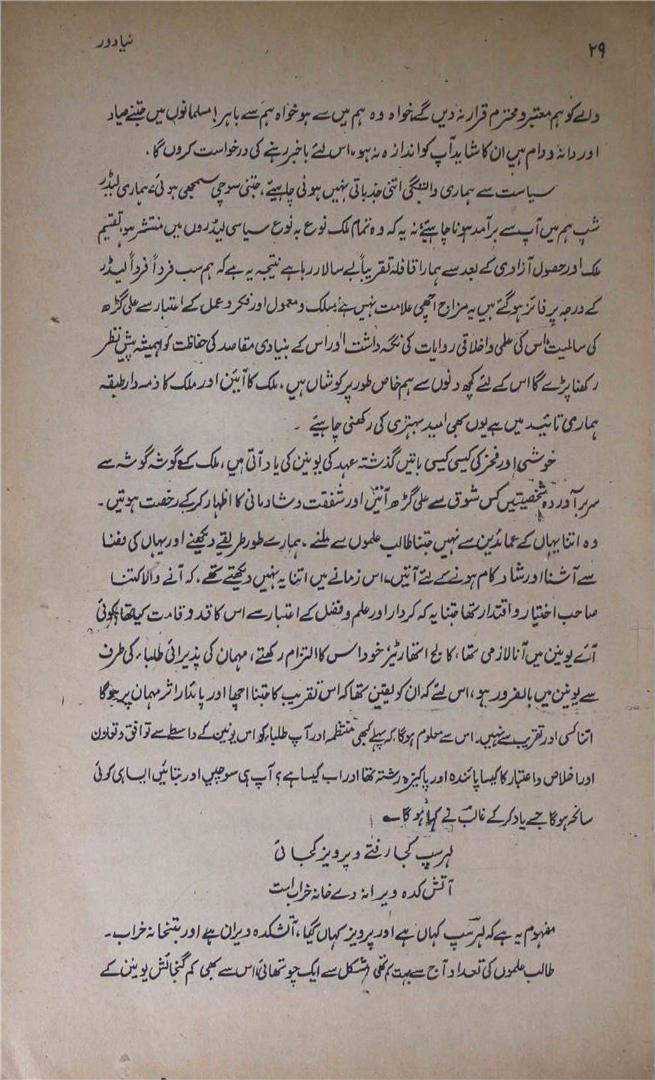 ۲۹
نیا دور
والے کو ہم معتبر و محترم قرار نہ دیں گے خواہ وہ ہم میں سے ہو خواہ ہم سے باہر! مسلمانوں میں جتنے صیاد
اور دانہ و دام ہیں ان کا شاید آپ کو اندازہ نہ ہو، اس لئے باخبر رہنے کی درخواست کروں گا۔
سیاست سے ہماری وابستگی اتنی جذباتی نہیں ہونی چاہیئے، جتنی سوچی سمجھی ہوئی، ہماری لیڈر
شپ ہم میں آپ سے برآمد ہونا چاہیئے نہ یہ کہ وہ تمام ملک نوع بہ نوع سیاسی لیڈروں میں منتشر ہو، تقسیم
ملک اور حصول آزادی کے بعد سے ہمارا قافلہ تقریباً بے سالار رہا ہے نتیجہ یہ ہے کہ ہم سب فرداً فرداً لیڈر
کے درجہ پر فائز ہو گئے ہیں یہ مزاج اچھی علامت نہیں ہے، مسلک و معمول اور فکر و عمل کے اعتبار سے علی گڑھ
کی سالمیت، اس کی علمی و اخلاقی روایات کی نگہداشت اور اس کے بنیادی مقاصد کی حفاظت کو ہمیشہ پیش نظر
رکھنا پڑے گا اس کے لئے کچھ دنوں سے ہم خاص طور پر کوشاں ہیں، ملک کا آئین اور ملک کا ذمہ دار طبقہ
ہماری تائید میں ہے یوں بھی امید بہتری کی رکھنی چاہیئے ۔
خوشی اور فخر کی کیسی کیسی باتیں گذشتہ عہد کی یونین کی یاد آتی ہیں، ملک کے گوشہ گوشہ سے
سربرآوردہ شخصیتیں کس شوق سے علی گڑھ آتیں اور شفقت و شادمانی کا اظہار کر کے رخصت ہوتیں۔
وہ اتنا یہاں کے عمائدین سے نہیں جتنا طالب علموں سے ملنے، ہمارے طور طریقے دیکھنے اور یہاں کی فضا
سے آشنا اور شاد کام ہونے کے لئے آتیں، اس زمانے میں اتنا یہ نہیں دیکھتے تھے، کہ آنے والا کتنا
صاحب اختیار و اقتدار تھا جتنا یہ کہ کردار اور علم و فضل کے اعتبار سے اس کا قد و قامت کیا تھا؟ کوئی
آئے یونین میں آنا لازمی تھا، کالج اتھارٹیز خود اس کا التزام رکھتے، مہمان کی پذیرائی طلباء کی طرف
سے یونین میں بالضرور ہو، اس لئے کہ ان کو یقین تھا کہ اس تقریب کا جتنا اچھا اور پائدار اثر مہمان پر ہوگا
اتنا کسی اور تقریب سے نہیں۔ اس سے معلوم ہوگا کہ پہلے کبھی منتظمہ اور آپ طلباء کو اس یونین کے واسطے سے توافق و تعاون
اور اخلاص و اعتبار کا کیسا پائندہ اور پاکیزہ رشتہ تھا اور اب کیسا ہے؟ آپ ہی سوچیں اور بتائیں ایسا ہی کوئی
سانحہ ہوگا جسے یاد کر کے غالبؔ نے کہا ہوگا ؎
لہرسپ کجا رفتے و پرویز کجائی
آتش کدہ ویرانہ و مے خانہ خراب است
مفہوم یہ ہے کہ لہرسپ کہاں ہے اور پرویز کہاں گیا، آتشکدہ ویران ہے اور بتخانہ خراب۔
طالب علموں کی تعداد آج سے بہت کم تھی (مشکل سے ایک چوتھائی) اس سے بھی کم گنجائش یونین کے